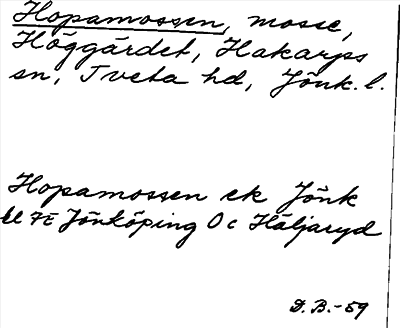 Hopamossen, mosse,
Höggärdet, Hakarps
sn, Tveta hd, Jönk. l.
Hopamossen ek Jönk
bl 7E Jönköping 0 c Häljaryd
D. B. -59